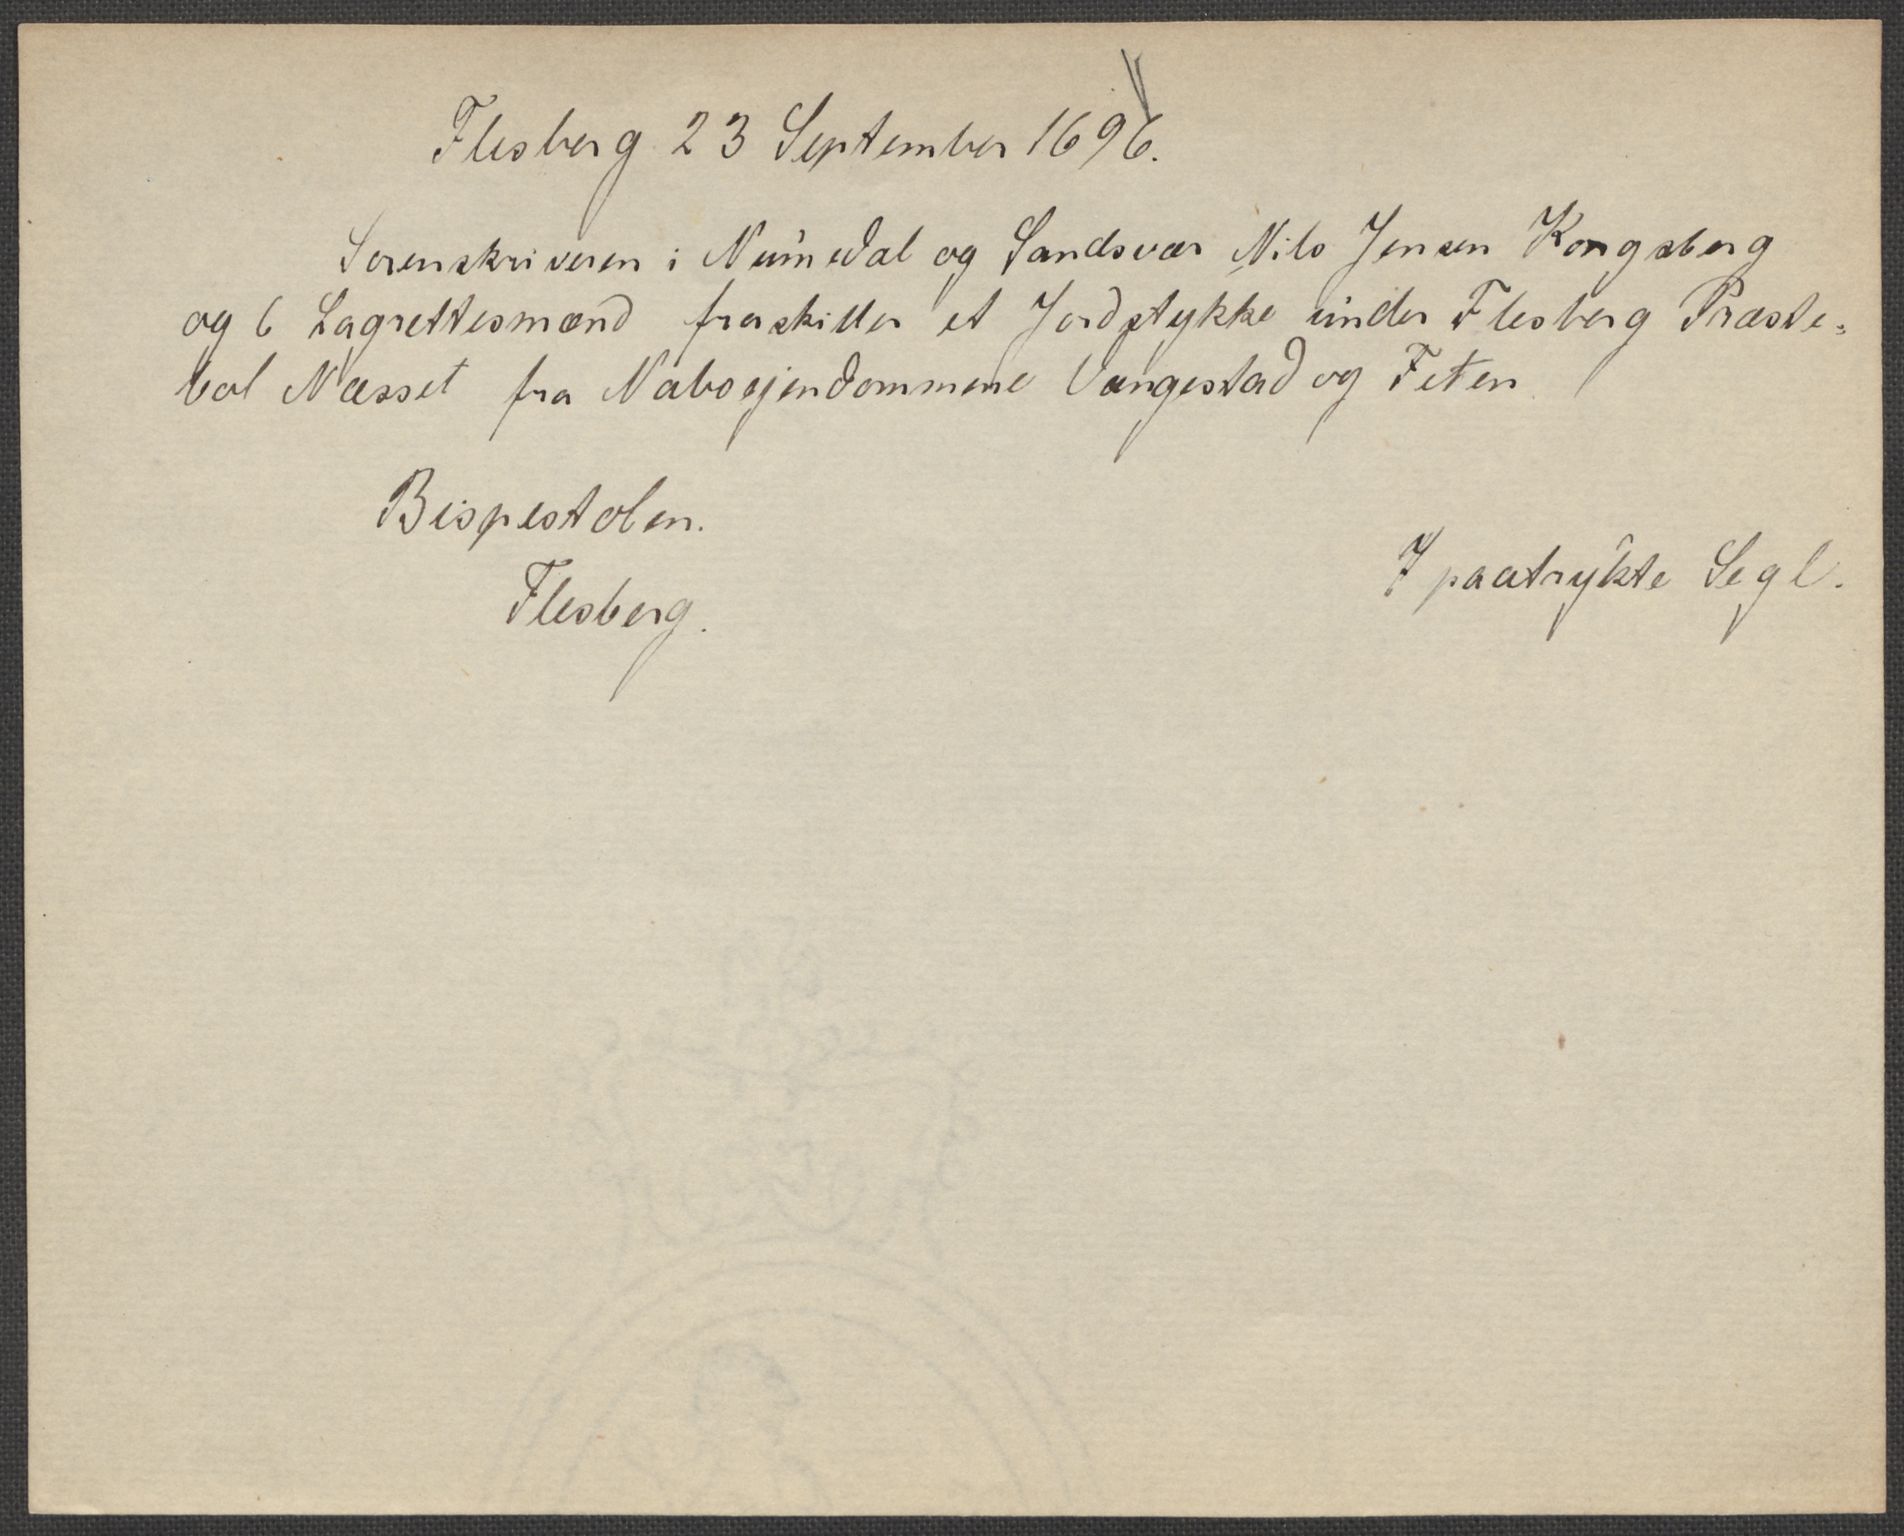 Flesberg 23 September 1696.
Sorenskriveren i Numedal og Sandsvær Nils Jensen Kongsberg
og 6 Lagrettesmænd fraskiller et Jordstykke under Flesberg Præste-
bol Næsset fra Naboejendommene Vangestad og Feten
Bispestolen.
Flesberg.
7 paatrykte Segl.